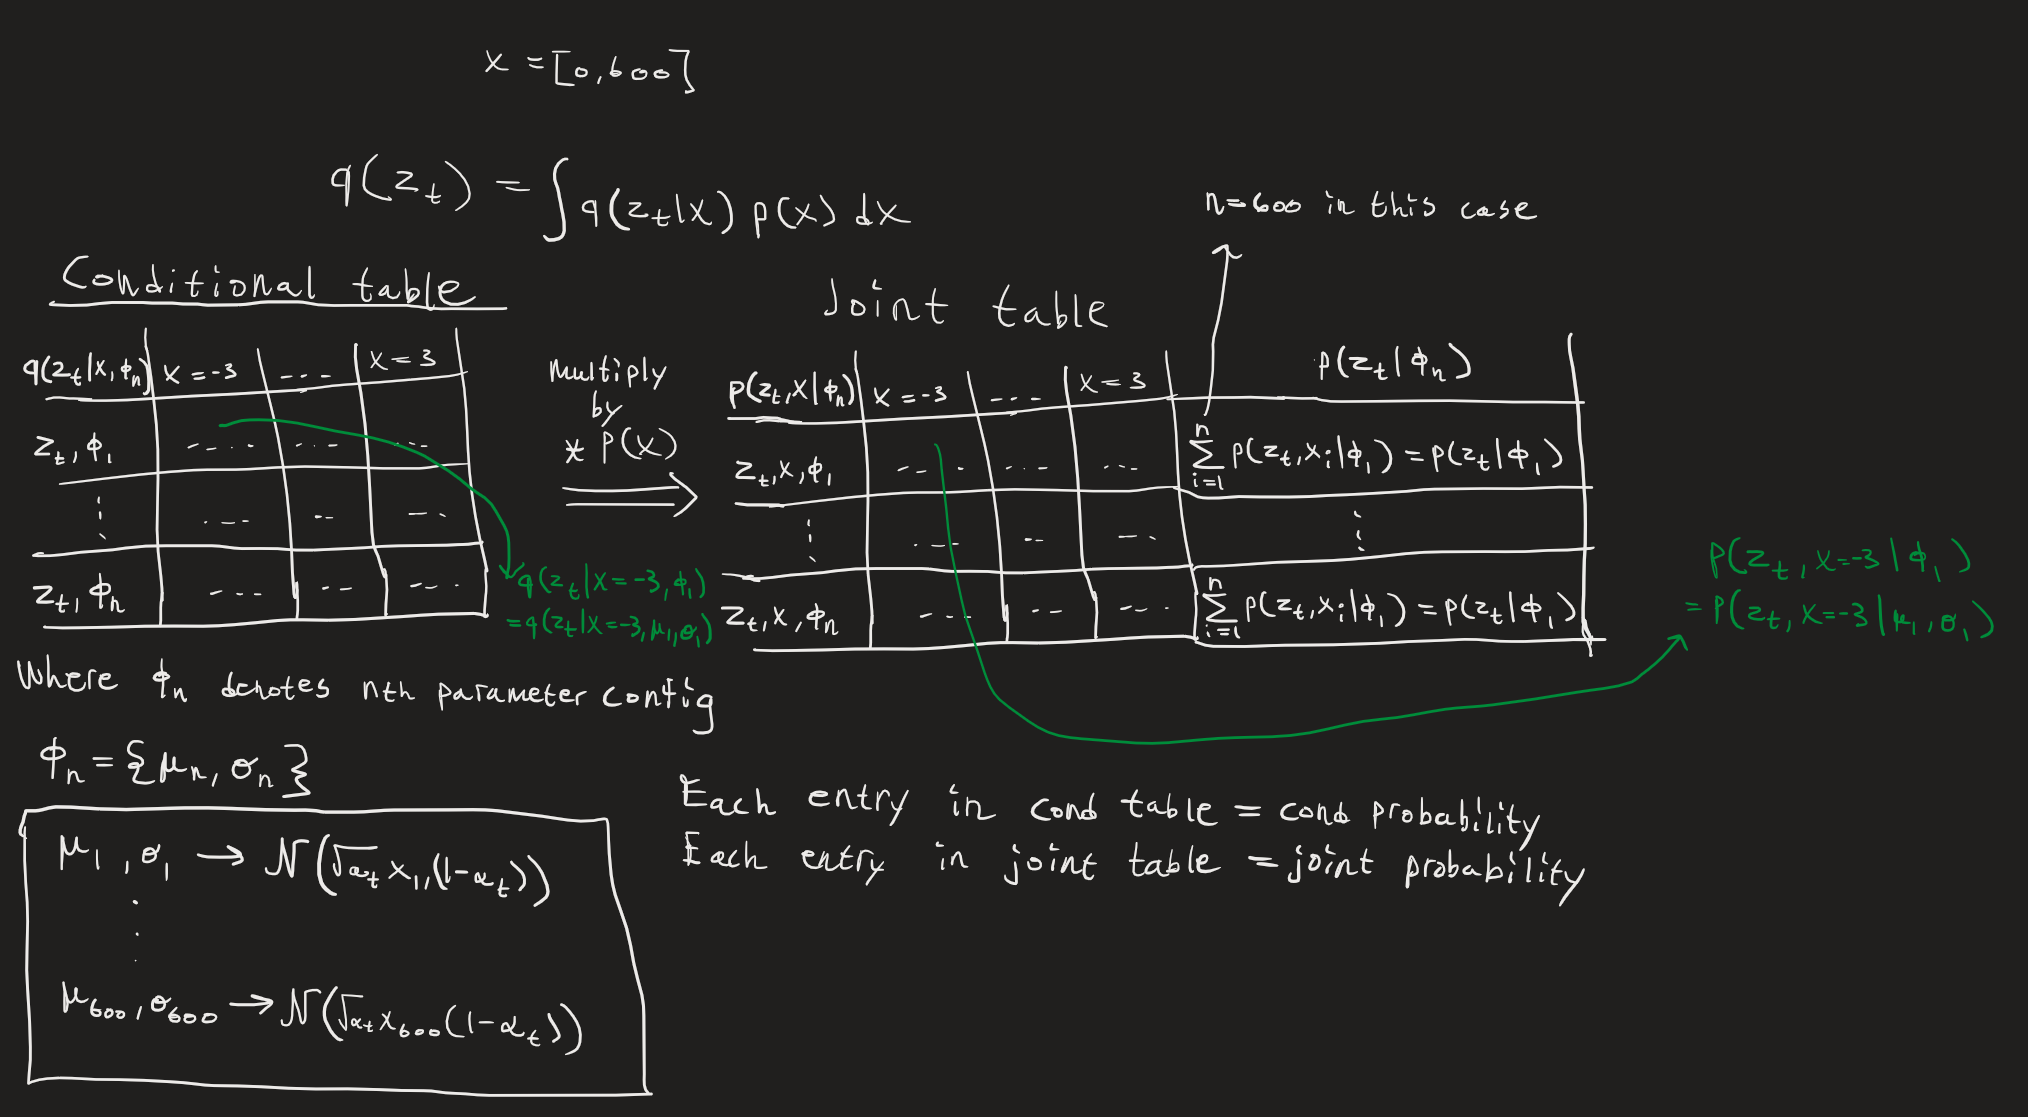 x = [0,600]
q(z_t) = ∫ q(z_t|x) p(x) dx
n=600 in this case
Conditional table
Joint table
q(z_t|x, ϕ_n) x = -3 --- x = 3
z_t, ϕ_1 -.-.- -..- -..-
⋮ .-- -- --.
z_t, ϕ_n --- -- --.
multiply
by
* P(x)
p(z_t, x|ϕ_n) x = -3 --- x = 3 p(z_t|ϕ_n)
z_t, x, ϕ_1 --.- -..- -.. ∑_{i=1}^{n} p(z_t, x_i|ϕ_1) = p(z_t|ϕ_1)
⋮ .-- -- --. ⋮
z_t, x, ϕ_n --- -- --. ∑_{i=1}^{n} p(z_t, x_i|ϕ_1) = p(z_t|ϕ_1)
q(z_t|x = -3, ϕ_1)
= q(z_t|x = -3, μ_1, σ_1)
P(z_t, x = -3 | ϕ_1)
= P(z_t, x = -3 | μ_1, σ_1)
Where ϕ_n denotes nth parameter config
ϕ_n = {μ_n, σ_n}
μ_1, σ_1 → N(√α_t x_1, (1-α_t))
⋮
μ_600, σ_600 → N(√α_t x_600 (1-α_t))
Each entry in cond table = cond probability
Each entry in joint table = joint probability